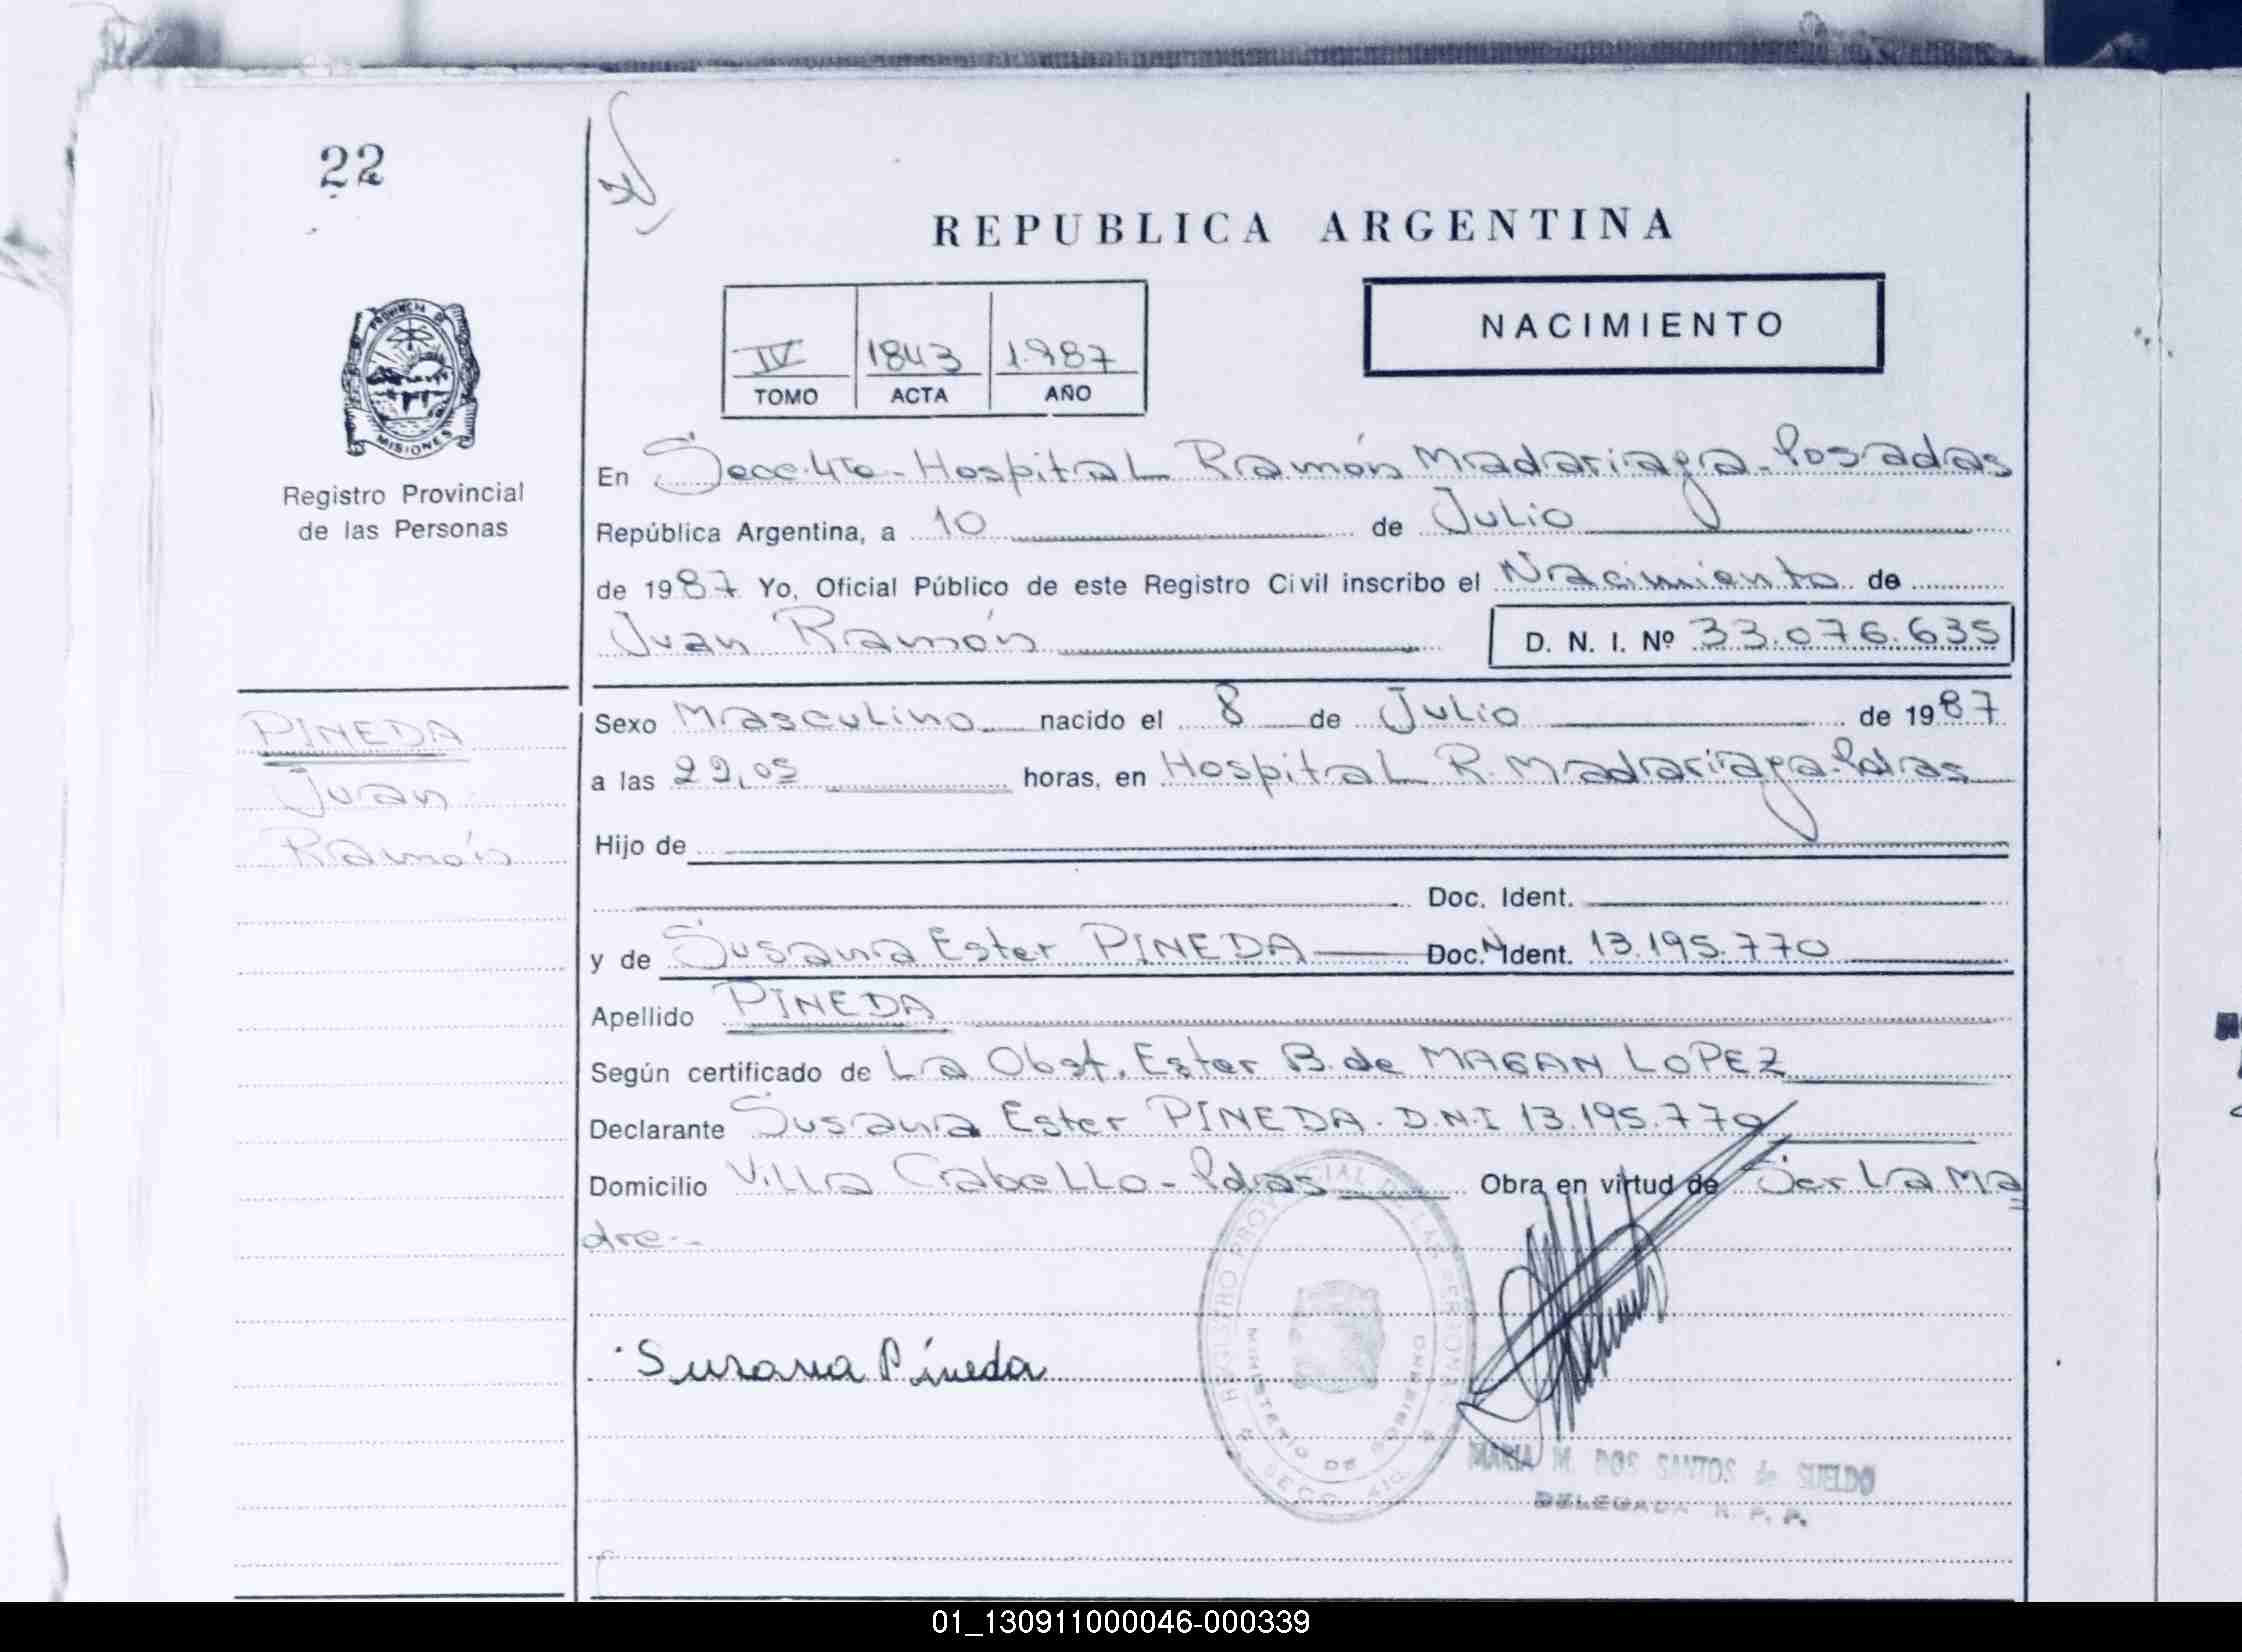 22
REPUBLICA ARGENTINA
NACIMIENTO
IV 1843 1.987
TOMO ACTA AÑO
PROVINCIA DE MISIONES
Registro Provincial
de las Personas
En Secc. 4ta - Hospital Ramón Madariaga - Posadas
República Argentina, a 10 de Julio
de 1987 Yo, Oficial Público de este Registro Civil inscribo el Nacimiento de
Juan Ramón D. N. I. Nº 33.076.635
PINEDA
Juan
Ramón
Sexo Masculino nacido el 8 de Julio de 1987
a las 22,05 horas, en Hospital R. Madariaga. Pdas
Hijo de
Doc. Ident.
y de Susana Ester PINEDA Doc. N Ident. 13.195.770
Apellido PINEDA
Según certificado de La Obst. Ester B. de MAGAN LOPEZ
Declarante Susana Ester PINEDA. D.N.I 13.195.770
Domicilio Villa Cabello - Pdas Obra en virtud de Ser La Ma
dre.-
Susana Pineda
REGISTRO PROVINCIAL DE LAS PERSONAS
MINISTERIO DE GOBIERNO
SECC. 4ta
MARIA M. DOS SANTOS de SUELDO
DELEGADA R. P. P.
01_130911000046-000339